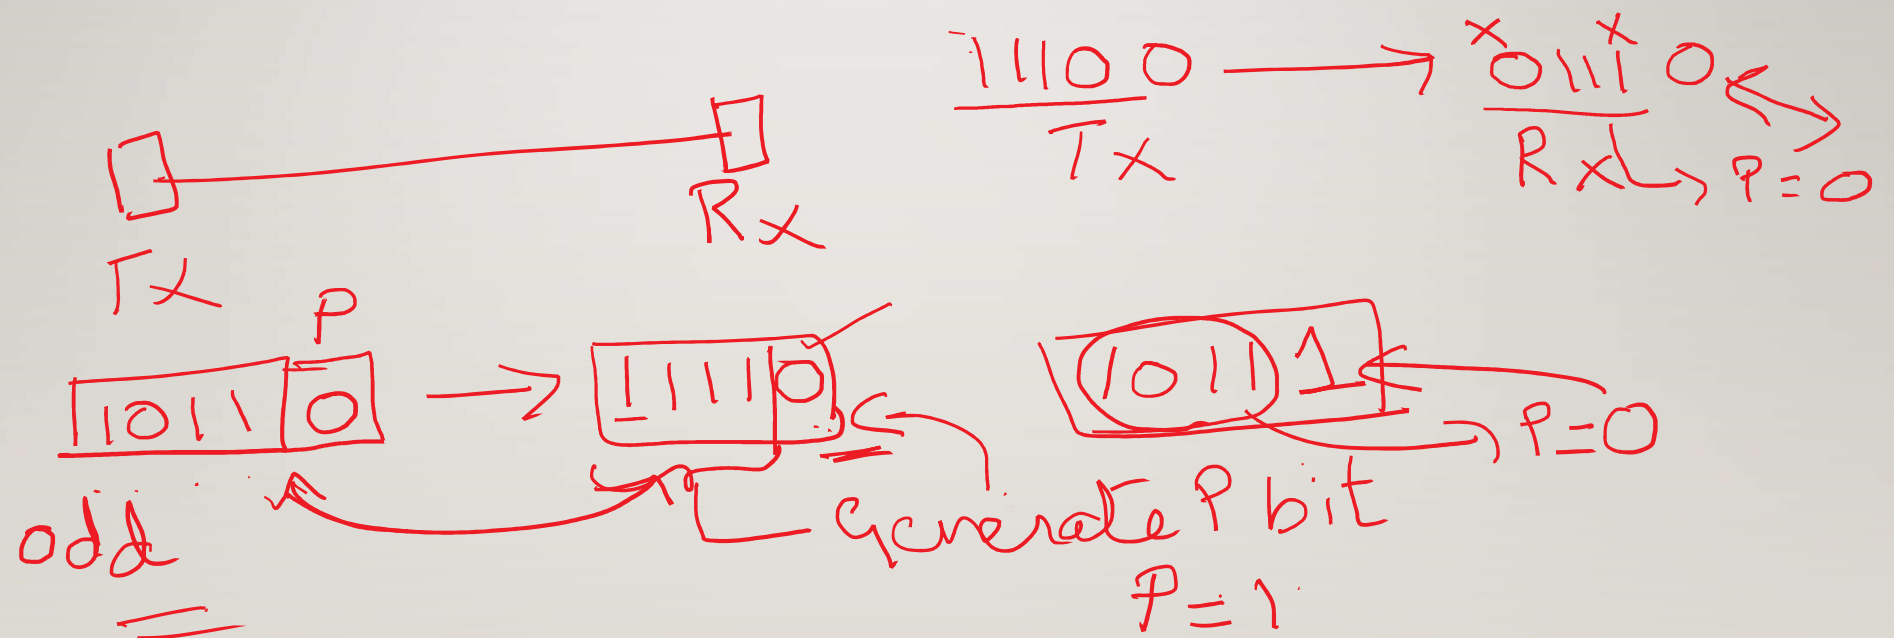 11100 0 → 01110 0
Tx
Rx
P=0
Tx
Rx
P
10110 → 11110
10111
P=0
odd
Generate P bit
P=1